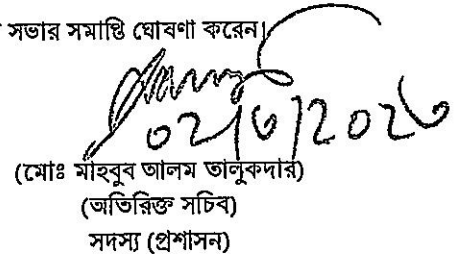 সভার সমাপ্তি ঘোষণা করেন।
(মোঃ মাহবুব আলম তালুকদার)
(অতিরিক্ত সচিব)
সদস্য (প্রশাসন)